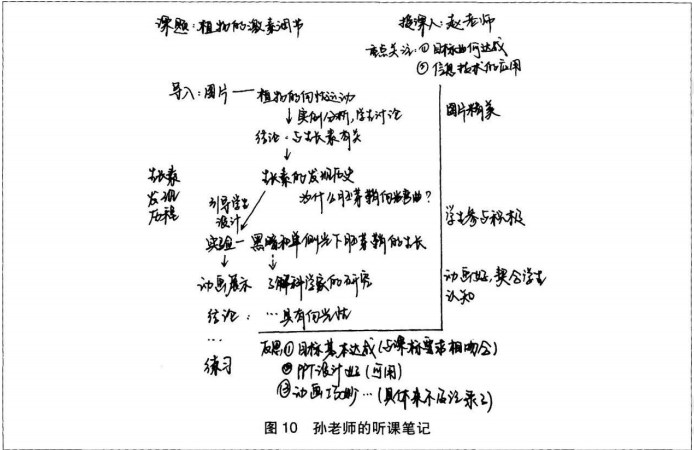 课题：植物的激素调节
授课人：赵老师
重点关注：①目标如何达成
②信息技术的应用
导入：图片——植物的向性运动
图片精美
↓实例分析，学生讨论
结论：与生长素有关
↓
生长素的发现历史
生长素
发现
历程
引导学生
设计
为什么胚芽鞘向光弯曲？
学生参与积极
实验一 黑暗和单侧光下胚芽鞘的生长
动画展示 了解科学家的研究
动画好，契合学生
认知
结论：…具有向光性
…
练习
反思①目标基本达成（与课标要求相吻合）
②PPT设计好（可用）
③动画巧妙…（具体来不及记录了）
图 10 孙老师的听课笔记